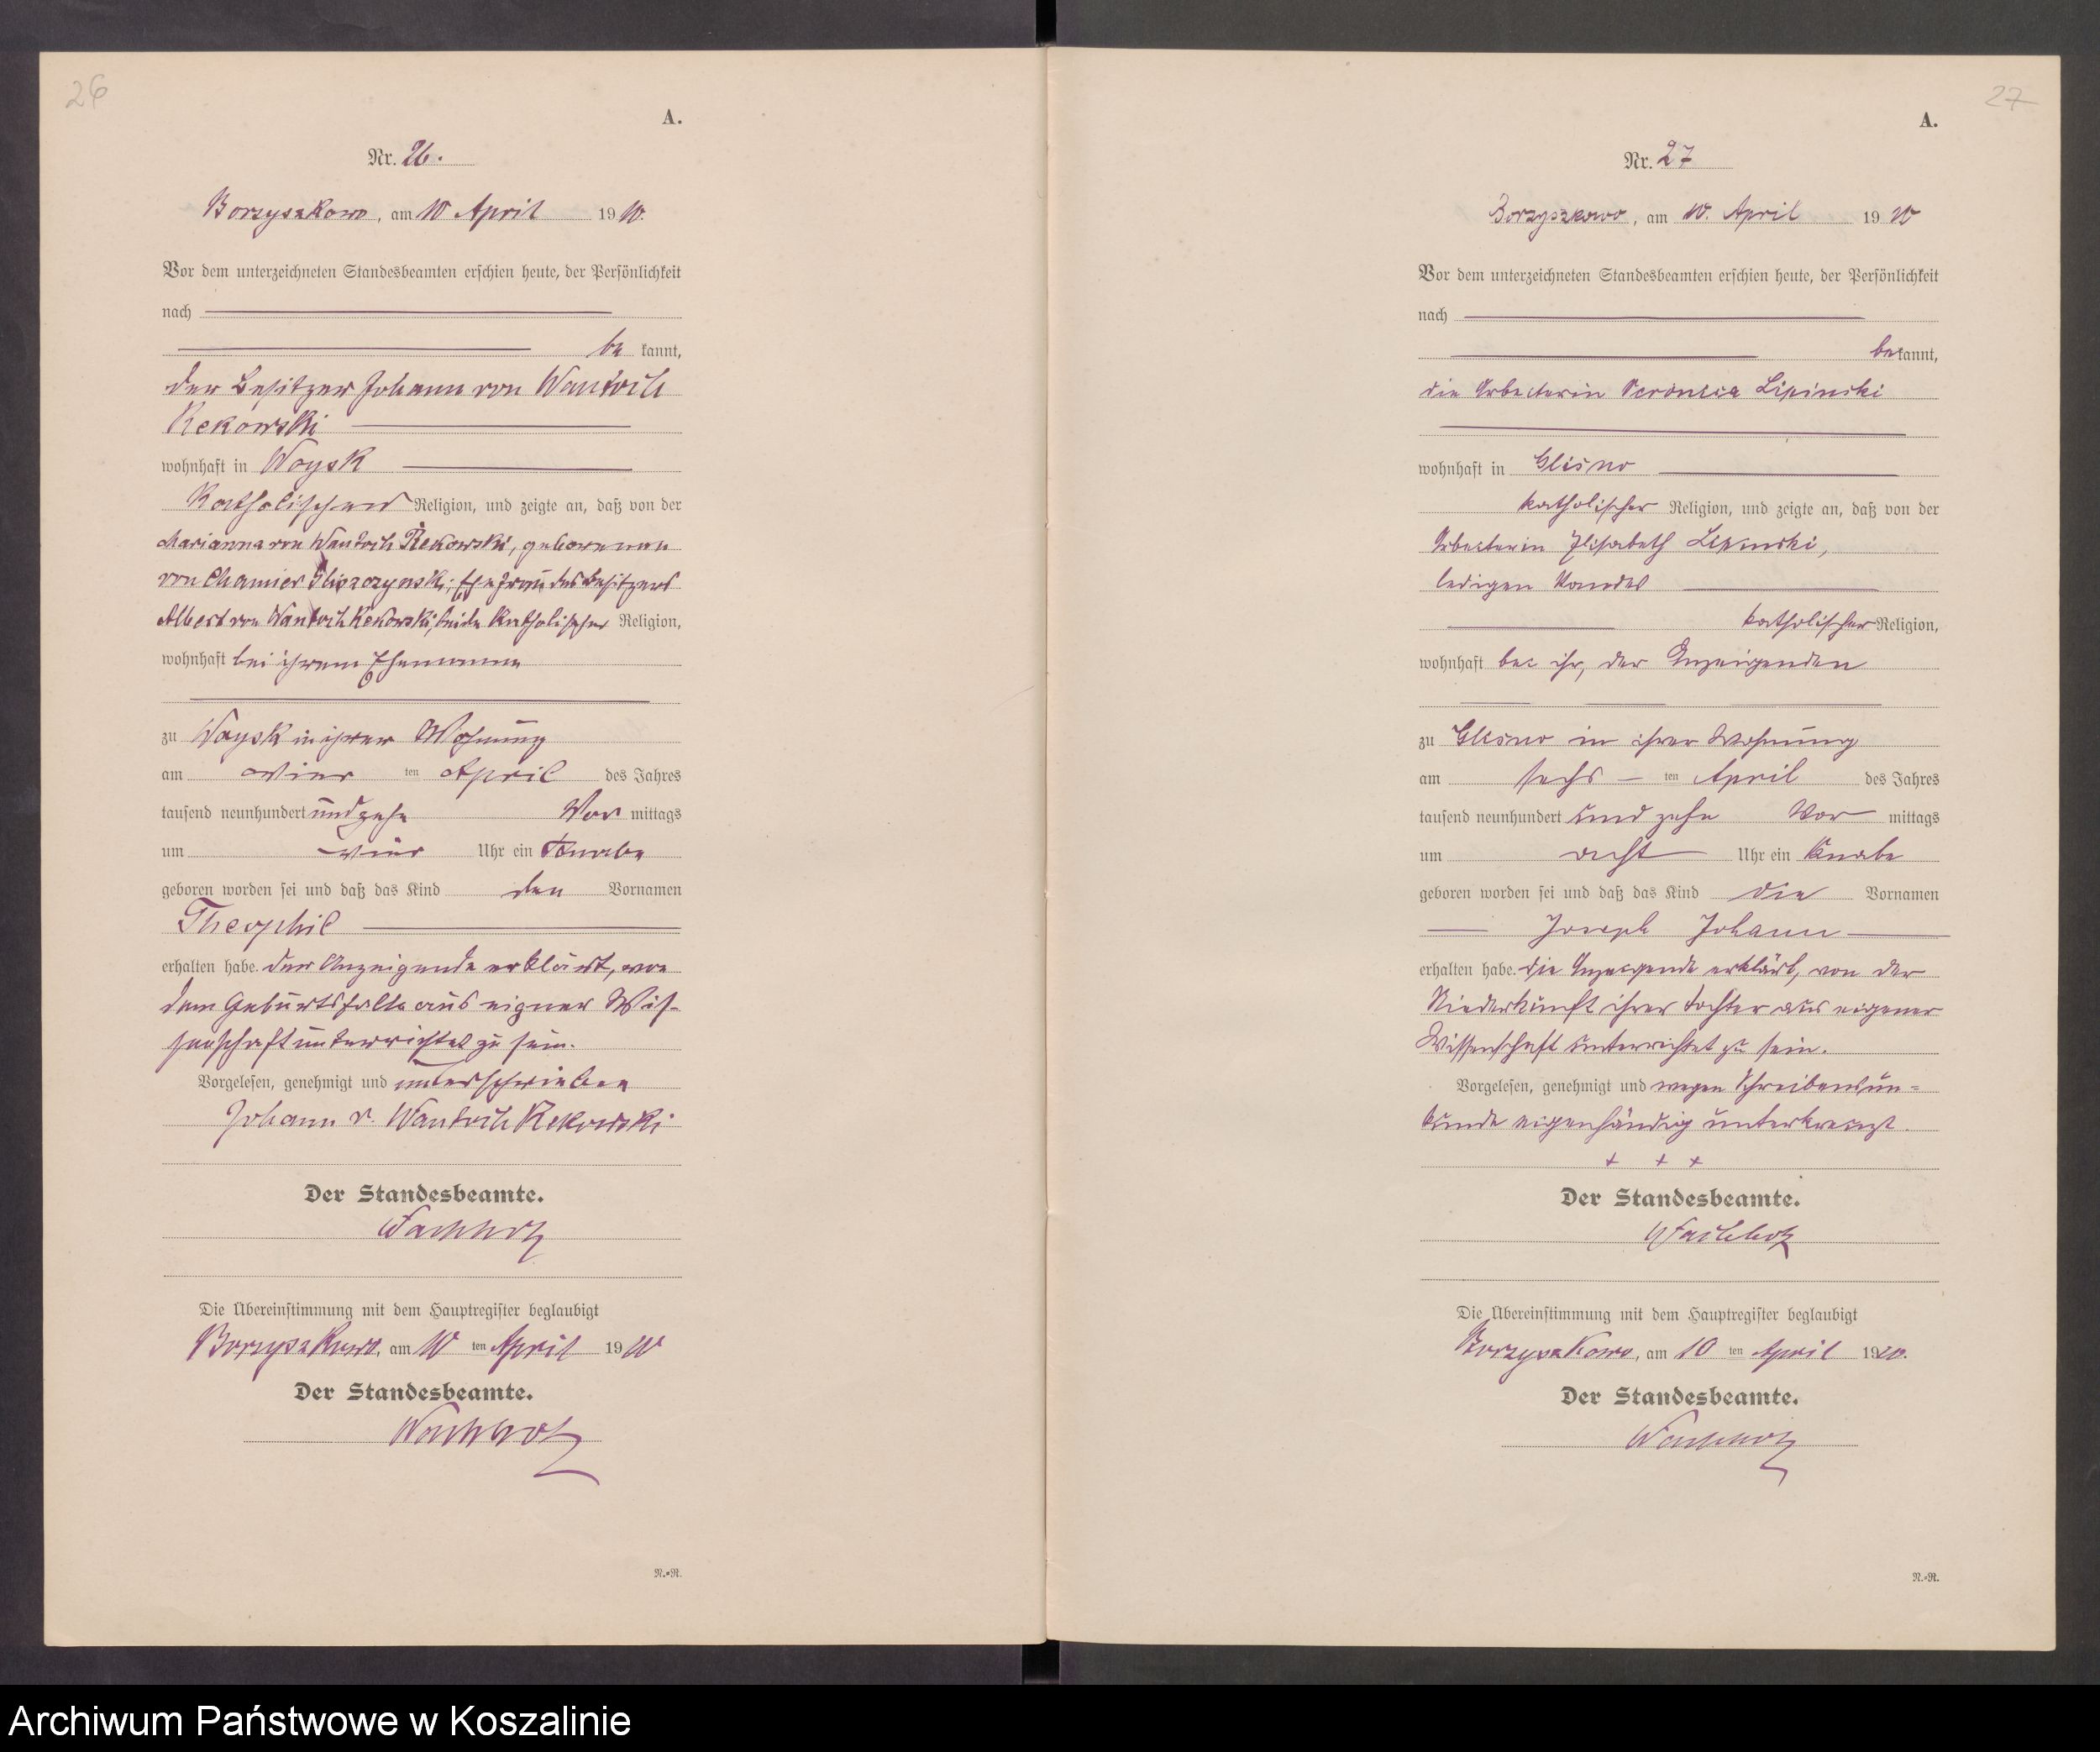 26
A.
Nr. 26.
Borzyszkowo, am 10 April 1910.
Vor dem unterzeichneten Standesbeamten erschien heute, der Persönlichkeit
nach
be kannt,
der Besitzer Johann von Wantoch
Rekowski
wohnhaft in Woysk
Katholischer Religion, und zeigte an, daß von der
Marianna von Wantoch Rekowski, geborenen
von Chamier Gliszczynski, Ehefrau des Besitzers
Albert von Wantoch Rekowski, beide Katholischer Religion,
wohnhaft bei ihrem Ehemanne
zu Woysk in ihrer Wohnung
am vier ten April des Jahres
tausend neunhundert und zehn Vor mittags
um vier Uhr ein Knabe
geboren worden sei und daß das Kind den Vornamen
Theophil
erhalten habe. Der Anzeigende erklärt, von
dem Geburtsfalle aus eigner Wis-
senschaft unterrichtet zu sein.
Vorgelesen, genehmigt und unterschrieben
Johann v. Wantoch Rekowski
Der Standesbeamte.
Wachholz
Die Übereinstimmung mit dem Hauptregister beglaubigt
Borzyszkowo, am 10 ten April 1910
Der Standesbeamte.
Wachholz
N.=R.
27
A.
Nr. 27
Borzyszkowo, am 10. April 1910
Vor dem unterzeichneten Standesbeamten erschien heute, der Persönlichkeit
nach
bekannt,
die Arbeiterin Veronica Lipinski
wohnhaft in Glisno
katholischer Religion, und zeigte an, daß von der
Arbeiterin Elisabeth Lipinski,
ledigen Standes
katholischer Religion,
wohnhaft bei ihr, der Anzeigenden
zu Glisno in ihrer Wohnung
am sechs ten April des Jahres
tausend neunhundert und zehn Vor mittags
um acht Uhr ein Knabe
geboren worden sei und daß das Kind die Vornamen
Joseph Johann
erhalten habe. Die Anzeigende erklärt, von der
Niederkunft ihrer Tochter aus eigener
Wissenschaft unterrichtet zu sein.
Vorgelesen, genehmigt und wegen Schreibensun=
kunde eigenhändig unterkreuzt.
+ + +
Der Standesbeamte.
Wachholz
Die Übereinstimmung mit dem Hauptregister beglaubigt
Borzyszkowo, am 10 ten April 1910.
Der Standesbeamte.
Wachholz
N.=R.
Archiwum Państwowe w Koszalinie